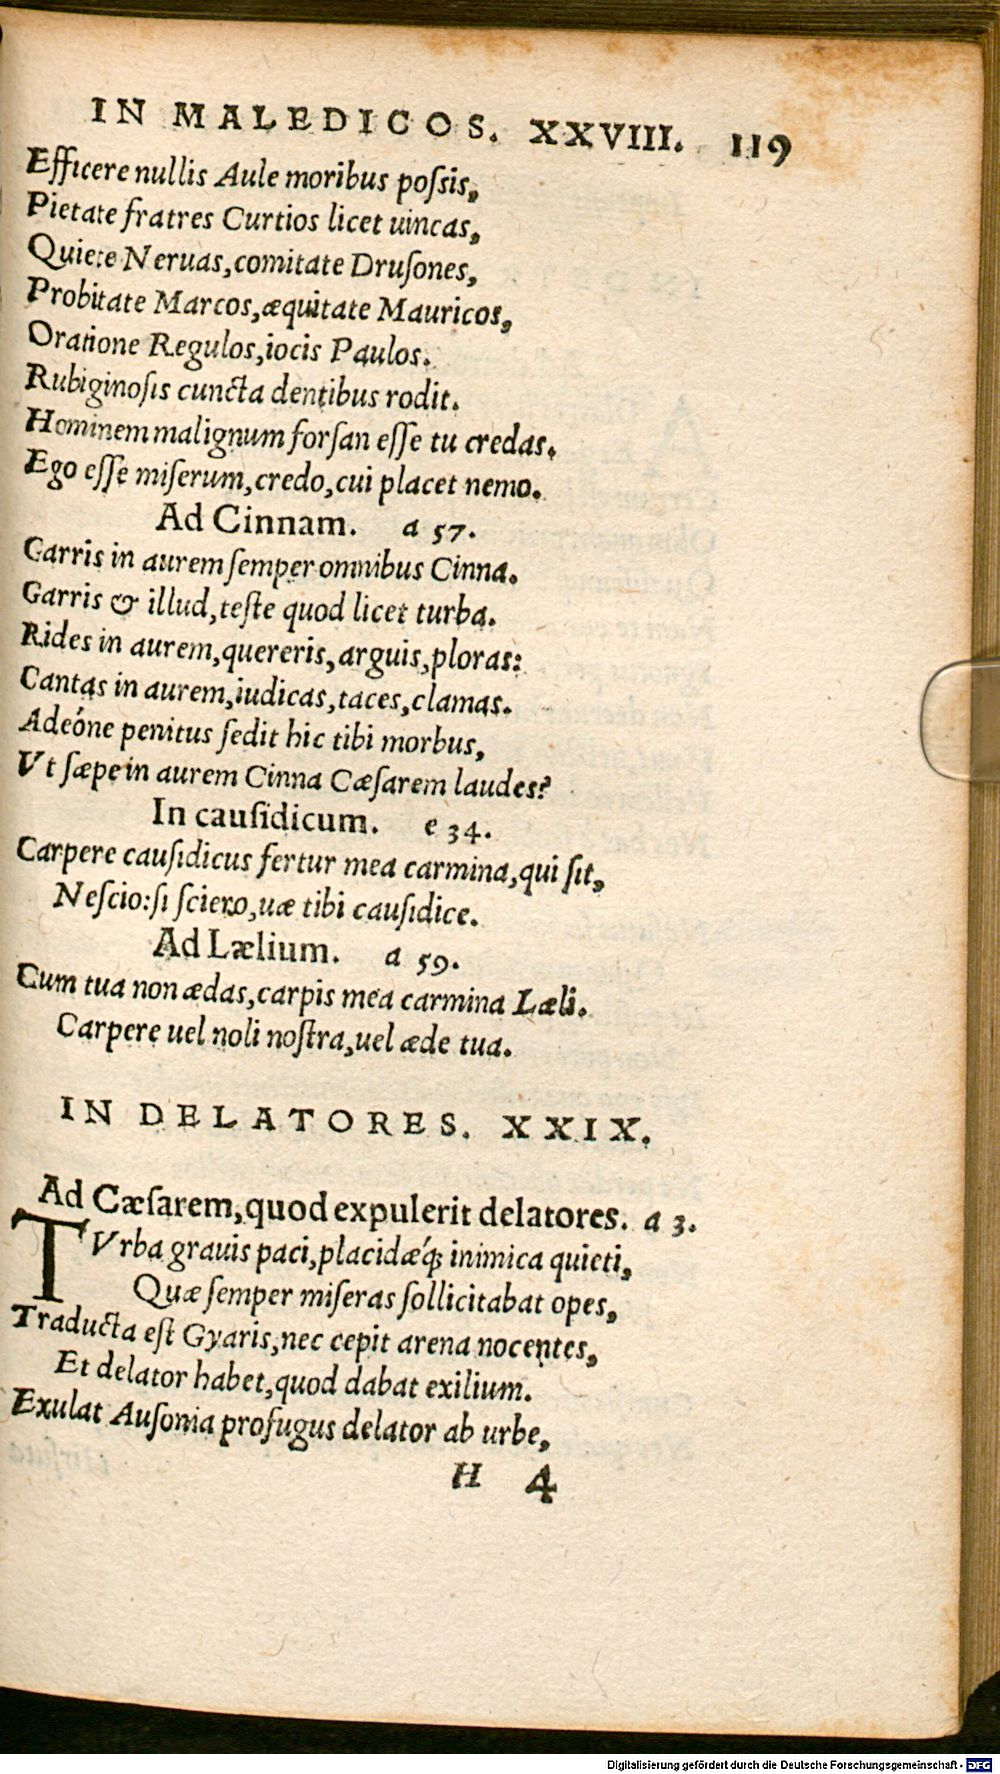 IN MALEDICOS. XXVIII. 119
Efficere nullis Aule moribus poſsis,
Pietate fratres Curtios licet uincas,
Quiete Neruas, comitate Druſones,
Probitate Marcos, æquitate Mauricos,
Oratione Regulos, iocis Paulos.
Rubiginoſis cuncta dentibus rodit.
Hominem malignum forſan eſſe tu credas.
Ego eſſe miſerum, credo, cui placet nemo.
Ad Cinnam. a 57.
Garris in aurem ſemper omnibus Cinna.
Garris & illud, teſte quod licet turba.
Rides in aurem, quereris, arguis, ploras:
Cantas in aurem, iudicas, taces, clamas.
Adeóne penitus ſedit hic tibi morbus,
Vt ſæpe in aurem Cinna Cæſarem laudes?
In cauſidicum. e 34.
Carpere cauſidicus fertur mea carmina, qui ſit,
Neſcio: ſi ſciero, uæ tibi cauſidice.
Ad Lælium. a 59.
Cum tua non ædas, carpis mea carmina Læli.
Carpere uel noli noſtra, uel æde tua.
IN DELATORES. XXIX.
Ad Cæſarem, quod expulerit delatores. a 3.
TVrba grauis paci, placidæq́; inimica quieti,
Quæ ſemper miſeras ſollicitabat opes,
Traducta eſt Gyaris, nec cepit arena nocentes,
Et delator habet, quod dabat exilium.
Exulat Auſonia profugus delator ab urbe,
H 4
Digitalisierung gefördert durch die Deutsche Forschungsgemeinschaft - DFG